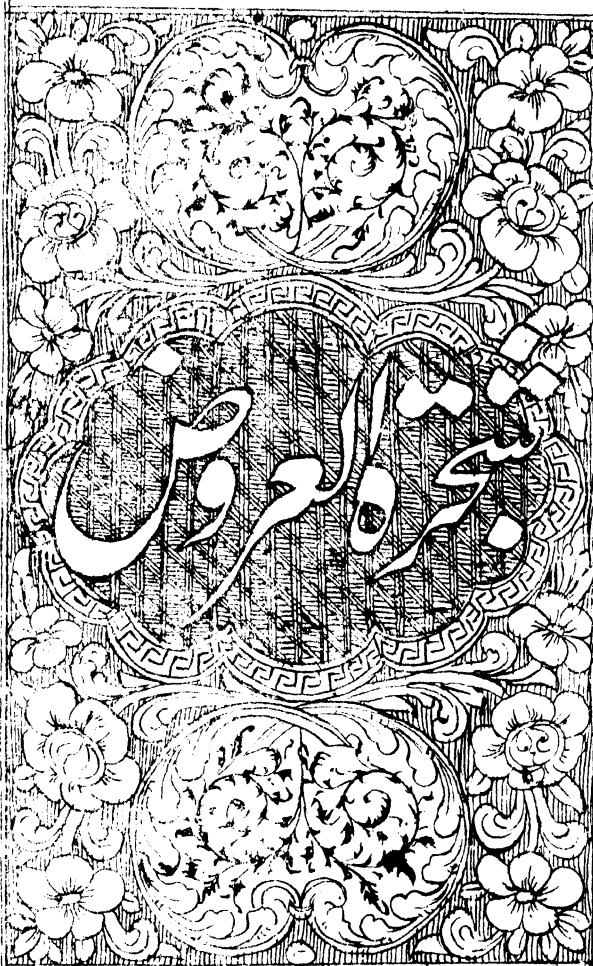 شجرة العروض